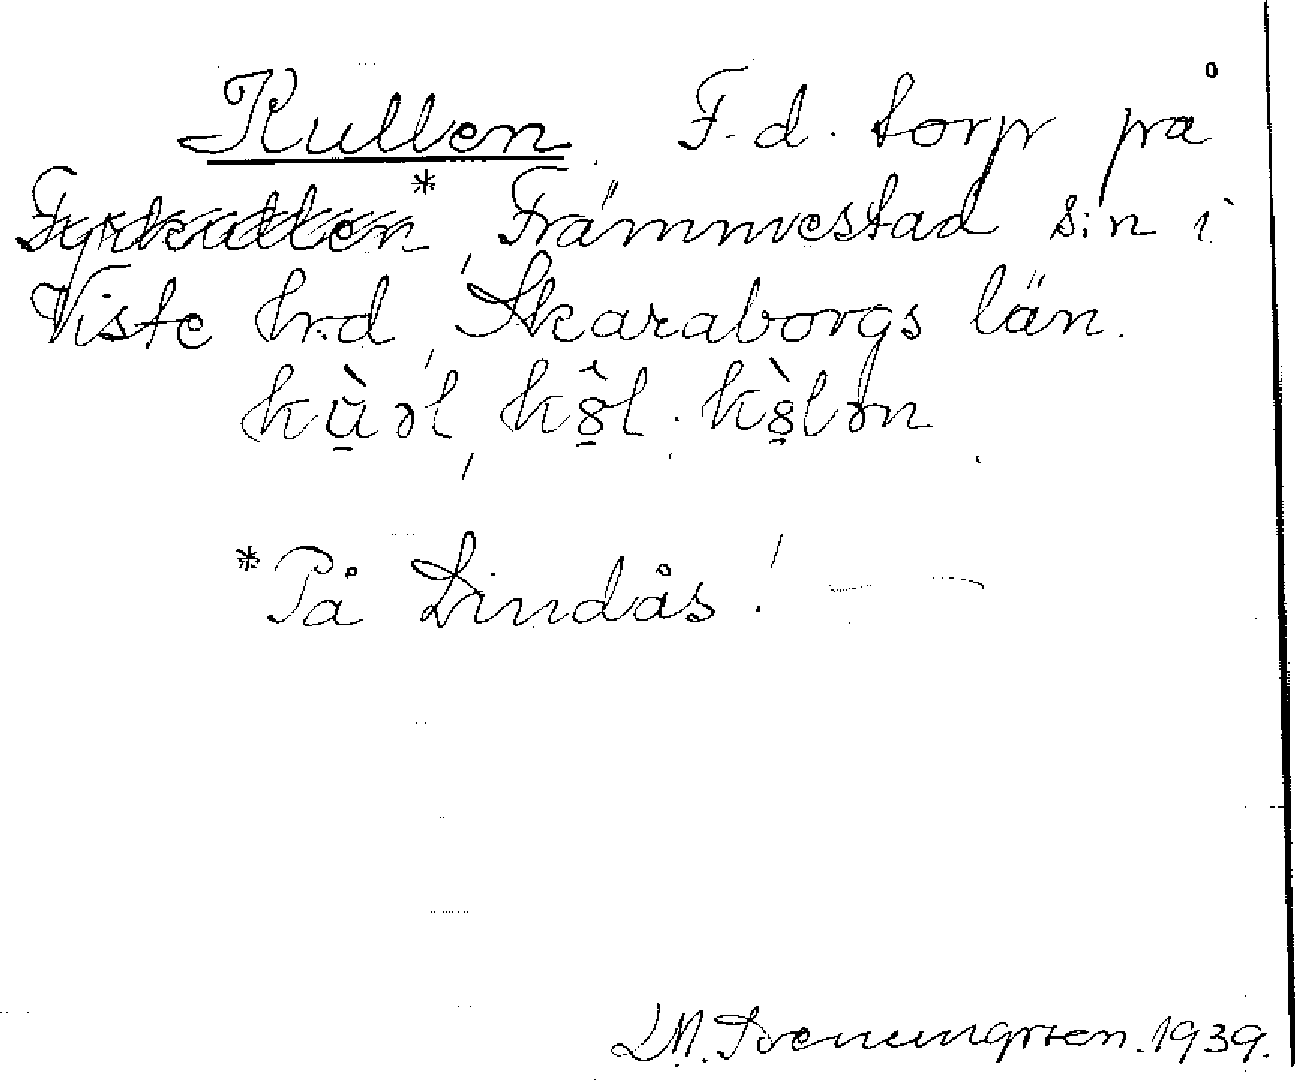 Kullen. F.d. torp på
Fyrkatten*, Främmestad s:n i
Viste hrd, Skaraborgs län.
kù̠əl, kô̠l. kò̠lən.
*På Lindås!
L.M. Svenungsson. 1939.